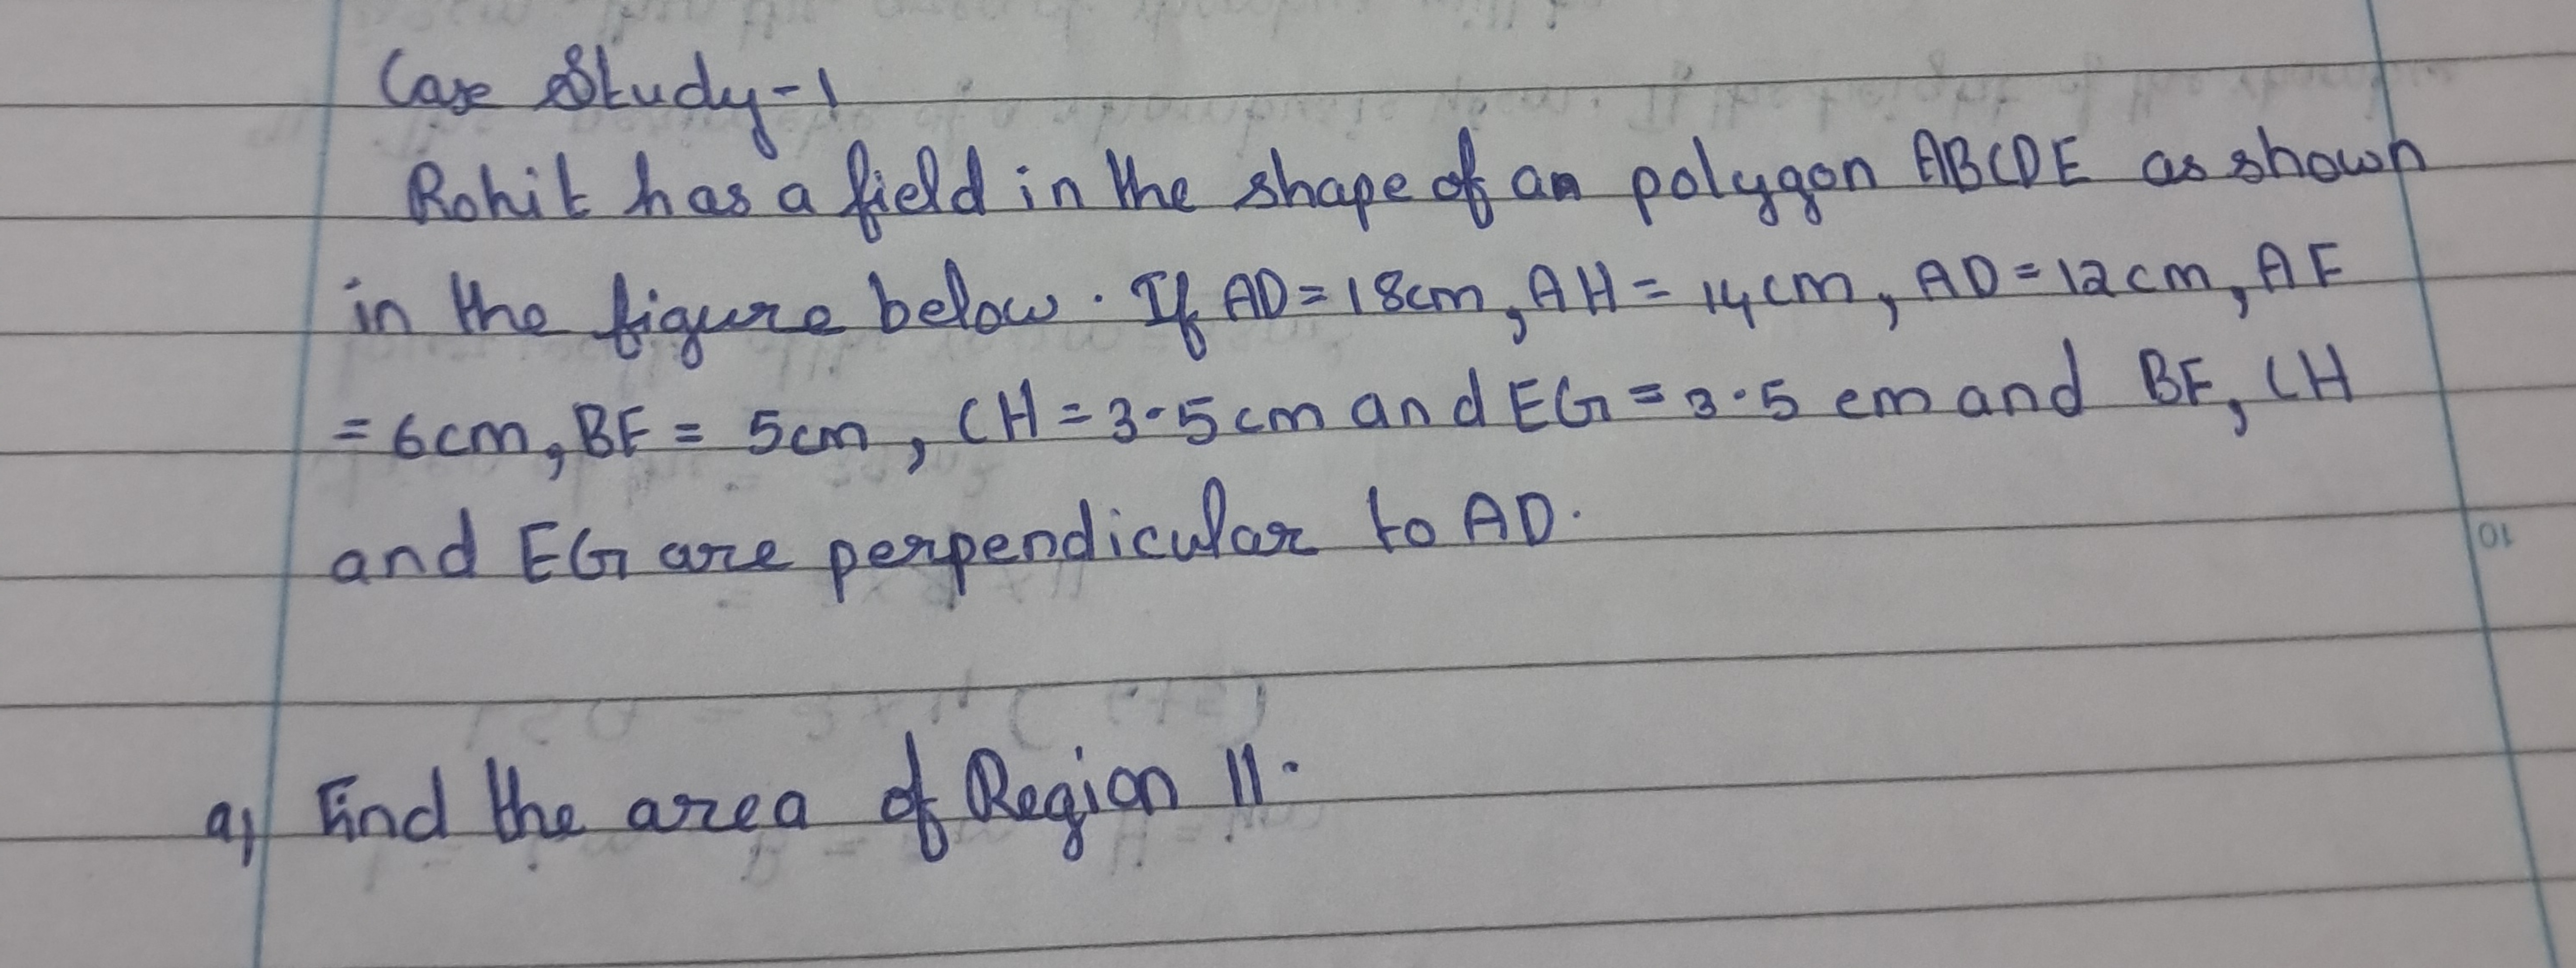 Case Study-1
Rohit has a field in the shape of an polygon ABCDE as shown
in the figure below. If AD=18cm, AH= 14cm, AD=12cm, AF
=6cm, BF= 5cm, CH=3.5cm and EG=3.5 cm and BF, CH
and EG are perpendicular to AD.
10
a) Find the area of Region II.